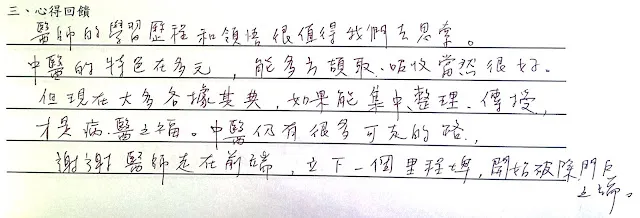 三、心得回饋
醫師的學習歷程和領悟很值得我們去思索。
中醫的特色在多元,能多方擷取、吸收當然很好。
但現在大多各據其典,如果能集中、整理、傳授,
才是病、醫之福。中醫仍有很多可走的路,
謝謝醫師走在前端,立下一個里程埤,開始破除門戶
之端。